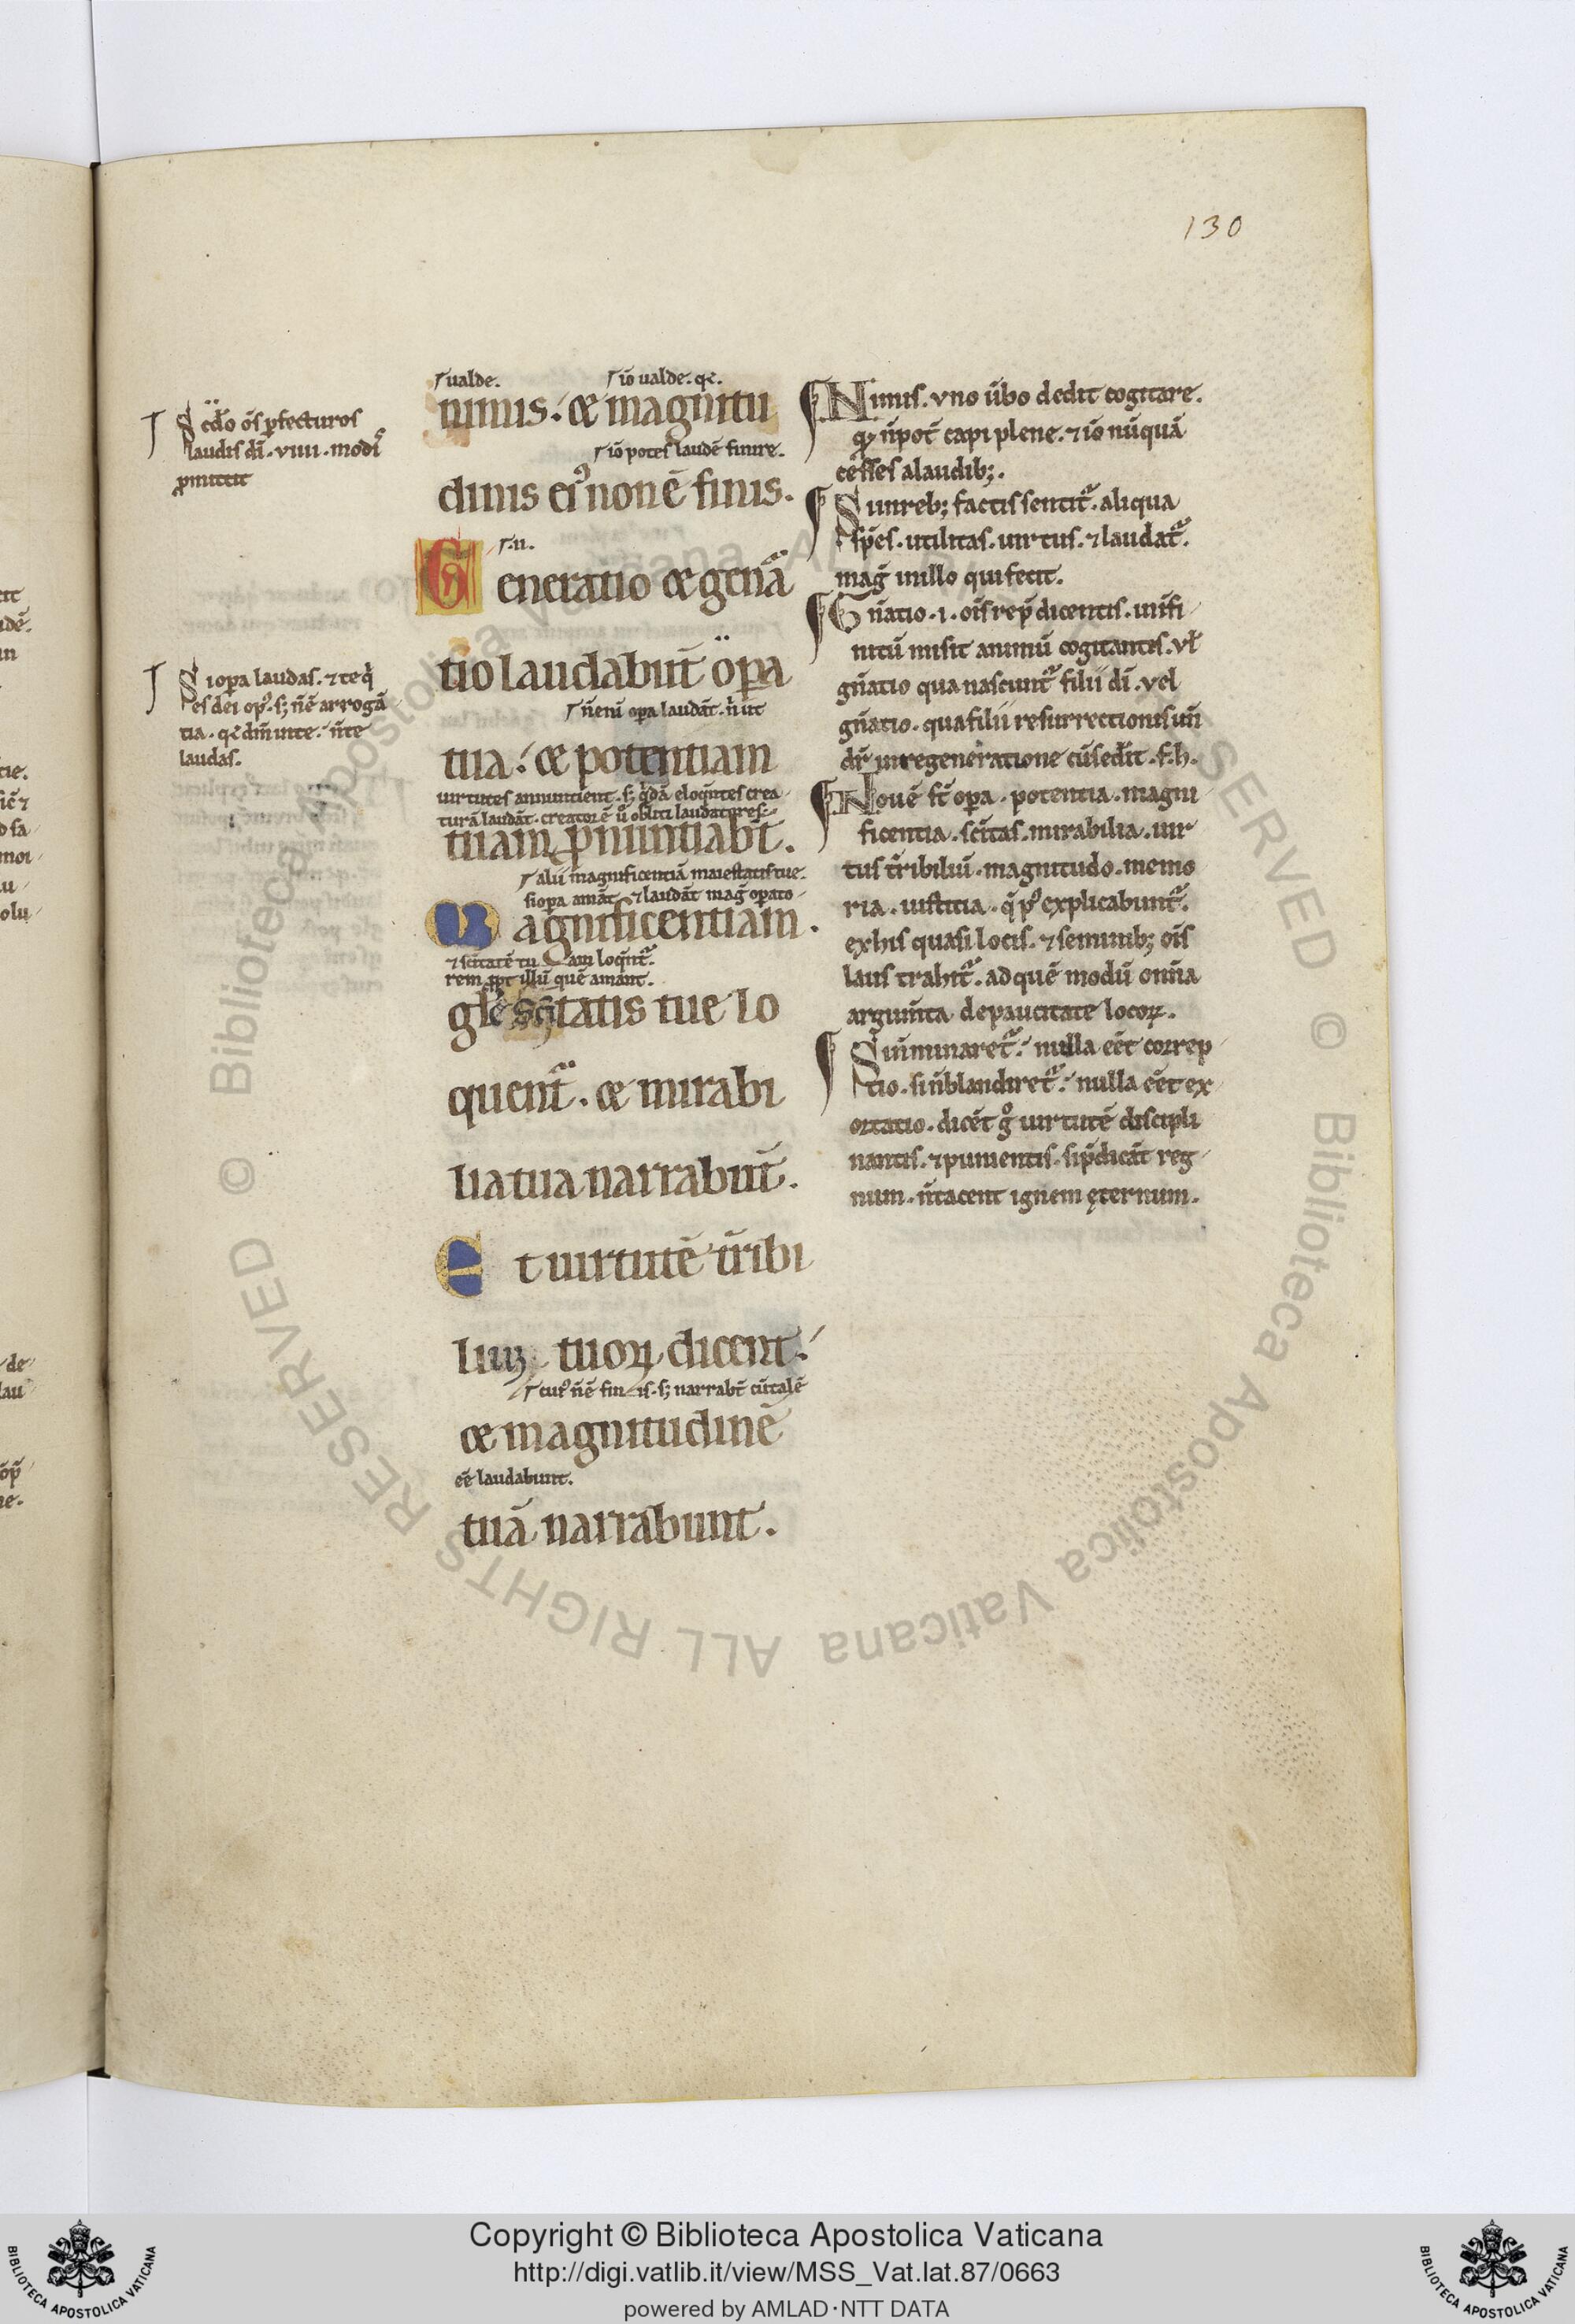 130
S cd̄o ōs ꝑfecturos
laudis dī . viiii . modꝰ
p̄mittit
S i oꝑa laudas . ⁊ te q̇
es dei opꝰ . sꝫ n̄ ē arrogā
tia . qꝛ dn̄m in te . n̄ te
laudas .
ualde .
iō ualde . qꝛ .
nimis . & magnitu
iō potes laudē finire .
dinis eiꝰ non ē finis .
.i. u .
Generatio & gen̄a
tio laudabun̄t oꝑa
n̄ enī oꝑa laudāt . n̄ ut
tua . & potentiam
uirtutes annuntient . sꝫ q̇dā eloq̄ntes crea
turā laudāt . creatorē u̓ obliti laudatores
tuam ꝓnuntiab̄t .
alii magnificentiā maiestatis tue .
si oꝑa amāt . ⁊ laudāt maḡ oꝑato
Magnificentiam .
⁊ sc̄itatē tuam loq̄nt᷑ .
rem ꝓpt illū quē amant .
gl̄e sc̄itatis tue lo
quent᷑ . & mirabi
lia tua narrabun̄t .
Et uirtutē t̄ribi
liuꝫ tuoꝝ dicent .
cuiꝰ n̄ ē finis . sꝫ narrab̄t cū talē
& magnitudinē
eē laudabunt .
tuā narrabunt .
Nimis . vno u̓bo dedit cogitare .
qꝫ n̄ pot̄ capi plene . ⁊ iō nūquā
cesses a laudibꝫ .
S i in rebꝫ factis sentit᷑ . aliqua
sp̄es . utilitas . uirtus . ⁊ laudat᷑ .
maḡ in illo qui fecit .
G n̄atio . i . oīs rep̄ dicentis . in ifi
nitū misit animū cogitantis . vl̄
gn̄atio qua nascunt᷑ filii dī . vel
gn̄atio . qua filii resurrectionis un̄
dr̄ in regeneratione cū sed̄it . f . h .
Nouē st̄ oꝑa . potentia . magni
ficentia . sc̄itas . mirabilia . uir
tus t̄ribiliū . magnitudo . memo
ria . iustitia . q̄ pꝰ explicabunt᷑ .
ex his quasi locis . ⁊ seminibꝫ oīs
laus trahit᷑ . ad quē modū om̄ia
argum̄ta de paucitate locoꝝ .
S i n̄ minaret᷑ . nulla eēt correp
tio . si n̄ blandiret᷑ . nulla eēt ex
ortatio . dicēt gͦ uirtutē discipli
nantis . ⁊ punientis . si p̄dicāt reg
num . n̄ tacent ignem ęternum .
Copyright © Biblioteca Apostolica Vaticana
http://digi.vatlib.it/view/MSS_Vat.lat.87/0663
powered by AMLAD·NTT DATA
BIBLIOTECA APOSTOLICA VATICANA
BIBLIOTECA APOSTOLICA VATICANA
© Biblioteca Apostolica Vaticana ALL RIGHTS RESERVED
© Biblioteca Apostolica Vaticana ALL RIGHTS RESERVED